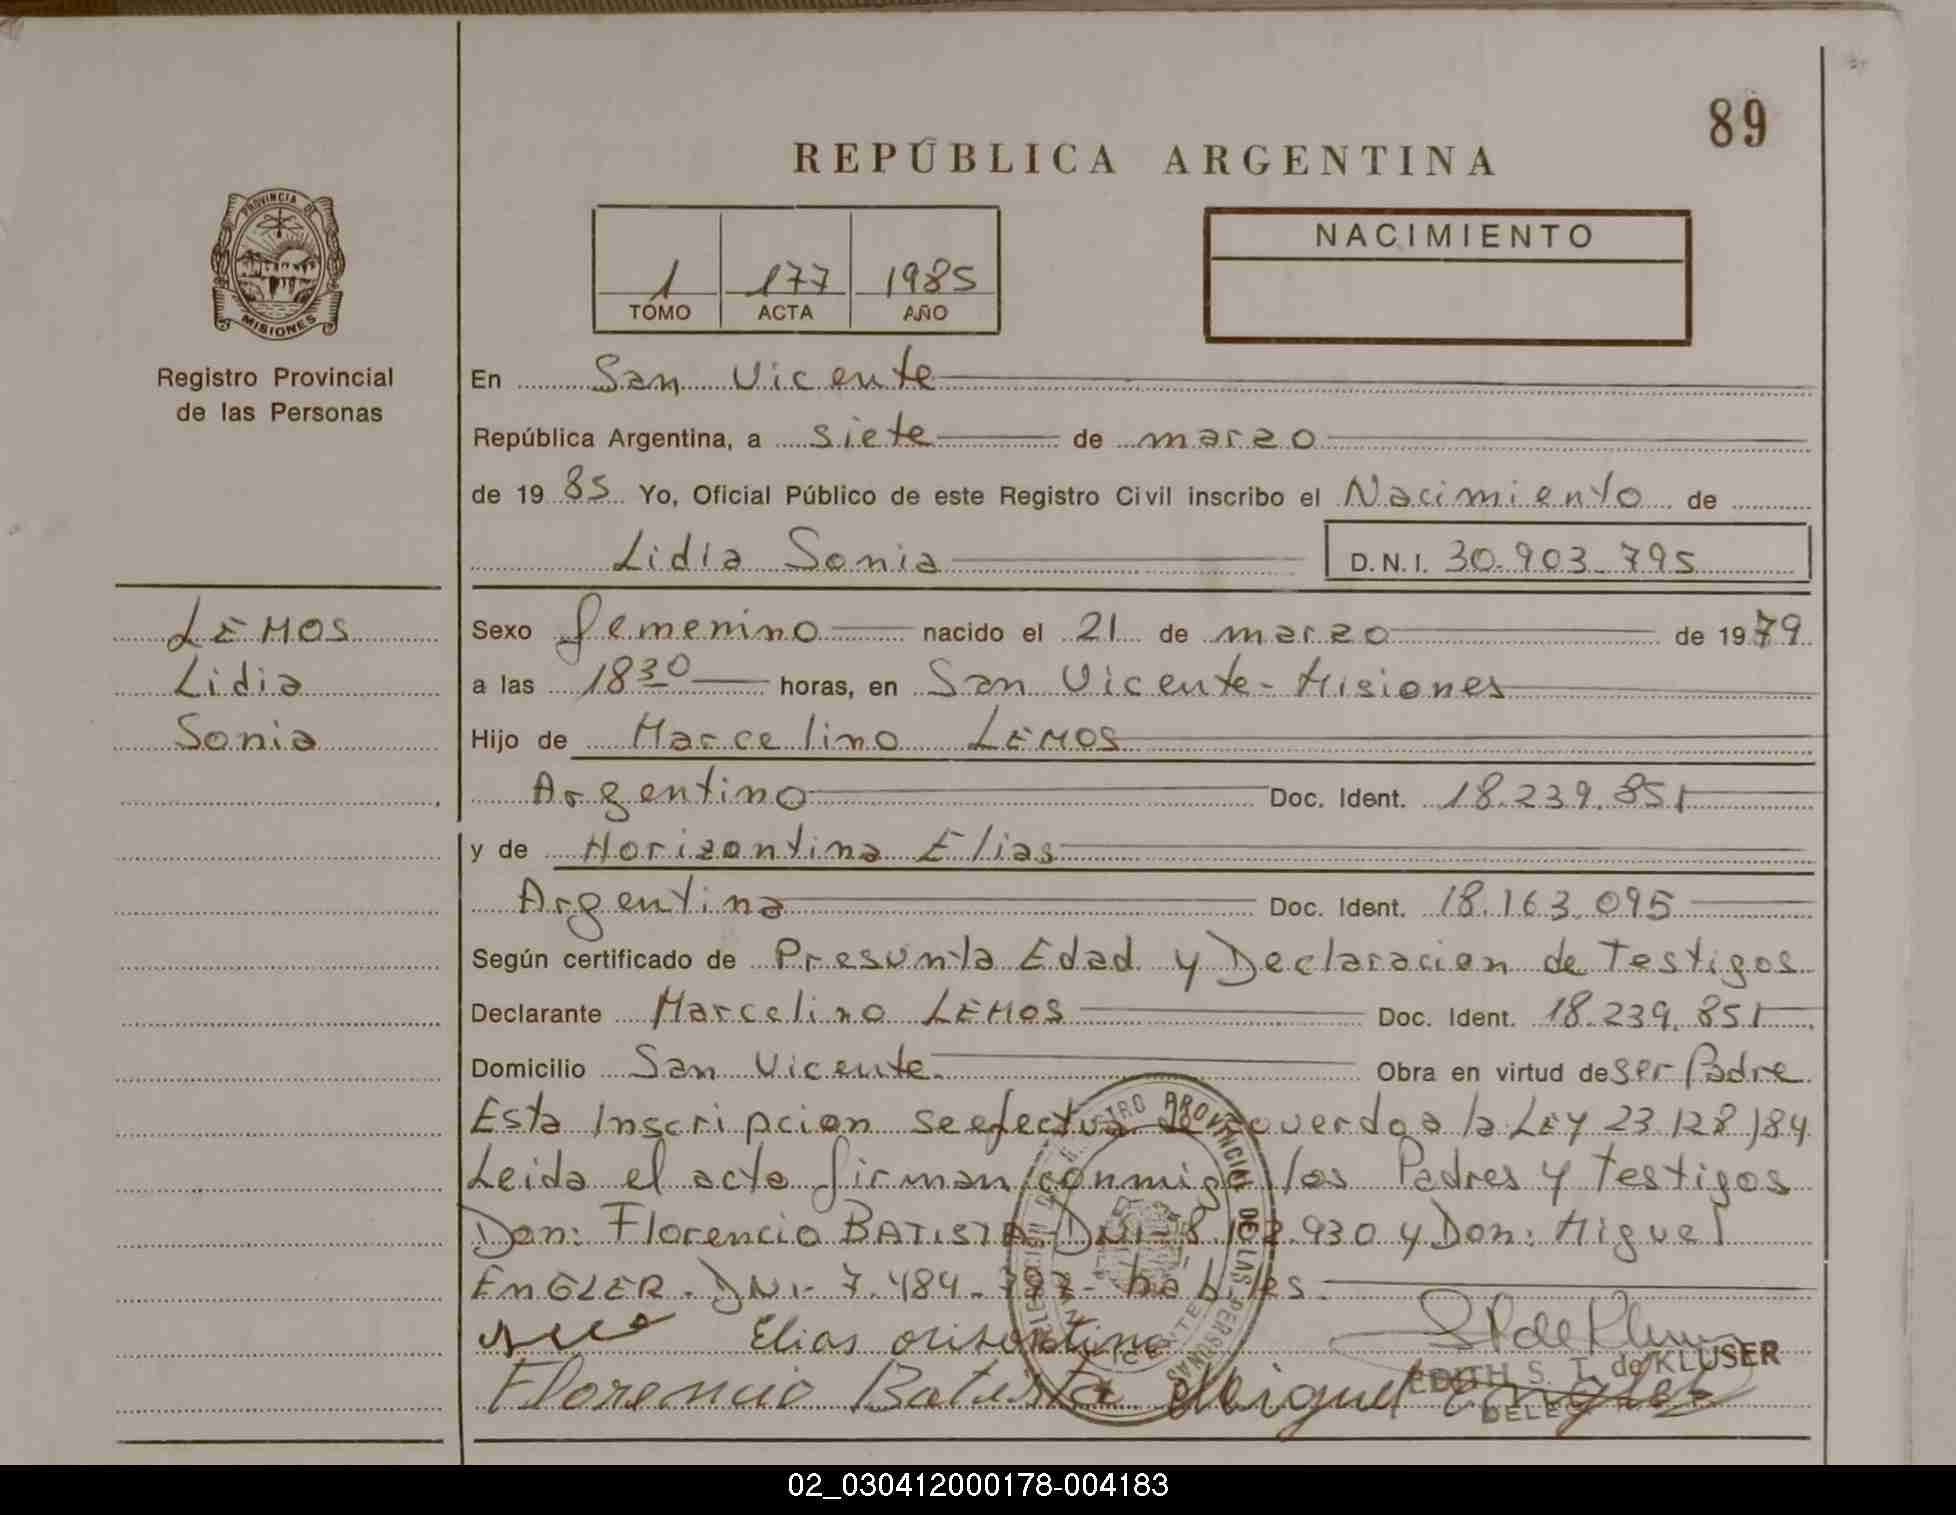 89
REPÚBLICA ARGENTINA
PROVINCIA DE
MISIONES
Registro Provincial
de las Personas
1 177 1985
TOMO ACTA AÑO
NACIMIENTO
En San Vicente
República Argentina, a siete de marzo
de 1985 Yo, Oficial Público de este Registro Civil inscribo el Nacimiento de
Lidia Sonia D.N.I. 30.903.795
LEMOS
Lidia
Sonia
Sexo femenino nacido el 21 de marzo de 1979
a las 18 30 horas, en San Vicente - Misiones
Hijo de Marcelino LEMOS
Argentino Doc. Ident. 18.239.851
y de Horizontina Elias
Argentina Doc. Ident. 18.163.095
Según certificado de Presunta Edad y Declaracion de Testigos
Declarante Marcelino LEMOS Doc. Ident. 18.239.851
Domicilio San Vicente. Obra en virtud de ser Padre
Esta Inscripcion se efectua de acuerdo a la LEY 23.128/84
Leida el acta firman conmigo los Padres y testigos
Don: Florencio BATISTA - DNI - 8.102.930 y Don: Miguel
ENGLER - DNI - 7.484. - habiles.
Elias orisontina
Florencio Batista Miguel Engler
EDITH S. T. de KLUSER
REGISTRO PROVINCIAL DE LAS PERSONAS
02_030412000178-004183